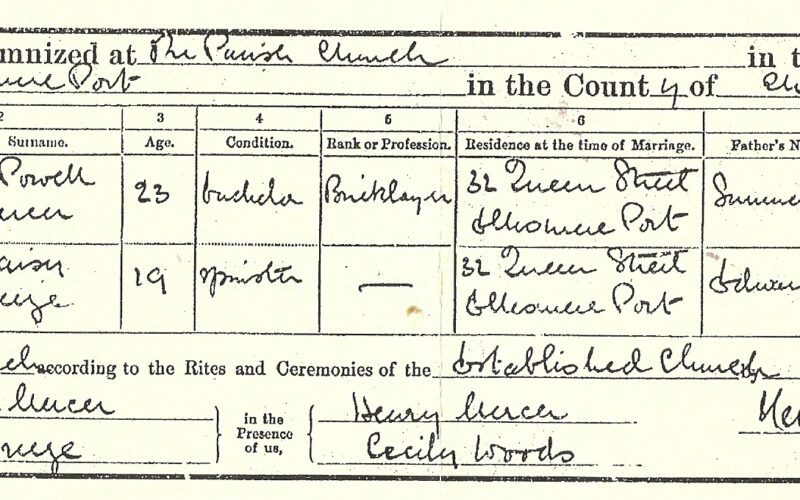 mnized at The Parish Church in t
mere Port in the County of Che
2 3 4 5 6
Surname. Age. Condition. Rank or Profession. Residence at the time of Marriage. Father's N
Powell 23 bachelor Bricklayer 32 Queen Street Sumner
ercer Ellesmere Port
19 spinster — 32 Queen Street Edwar
Ellesmere Port
according to the Rites and Ceremonies of the Established Church by
Mercer in the Presence of us, Henry Mercer Hen
Cecily Woods